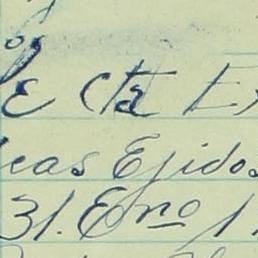 E Cta E
cas Ejidos
31. Enº 1